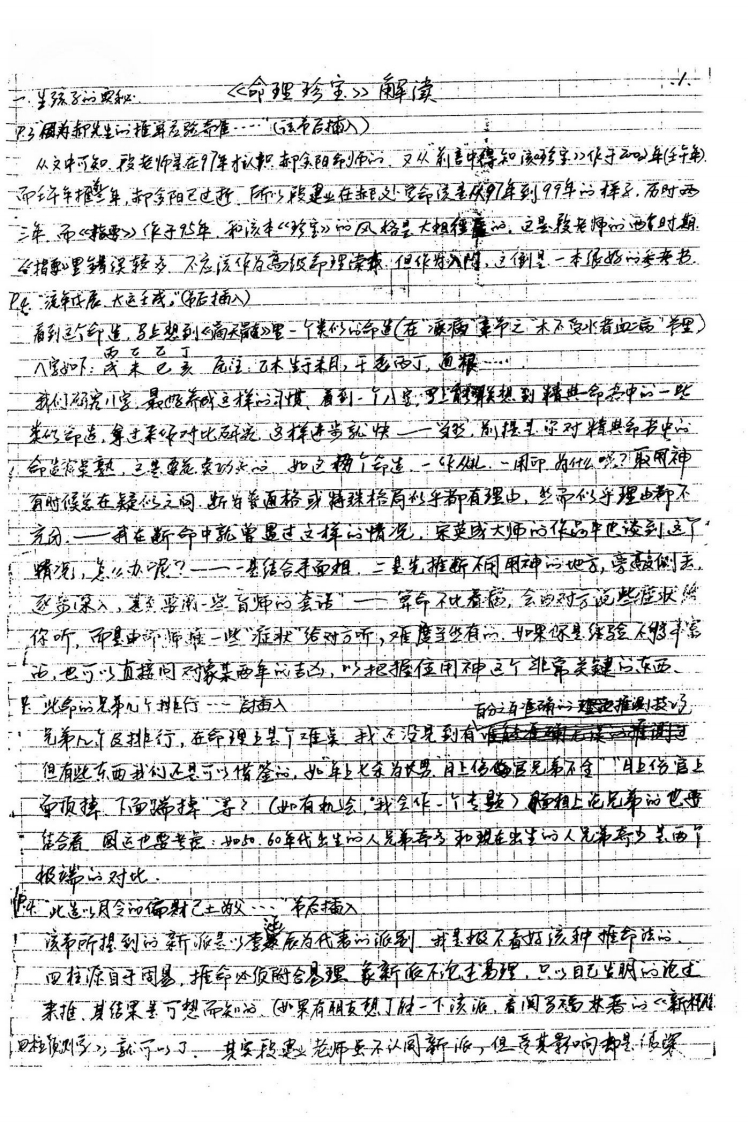 《命理珍宝》解读 1.
一.生孩子的奥秘.
P.3"因为郝先生的推算应验奇准……"(该书后插入)
从文中可知,段老师是在97年才认识郝金阳命师的,又从前言中得知该《珍宝》作于2002年(壬午年)
而壬午年推年,郝金阳已过逝,所以段建业在郝处学命该是从97年到99年的样子,历时两
三年,而《指要》作于95年,和该本《珍宝》的风格是大相径庭的,这是段老师的两个时期.
《指要》里错误较多,不应该作为高级命理读载,但作为入门,这倒是一本很好的参考书.
P.4."流年戊辰,大运壬戌,"(书后插入)
看到这个命造,马上想到《滴天髓》里一个类似的命造(在"疾病"章节之"木不受水者血病"节里)
八字如下: 丙戌 乙未 乙巳 丁亥 原注:乙木生于未月,干透丙丁,通根……
我们研究八字,最好养成这样的习惯,看到一个八字,马上能联想到精典命书中的一些
类似命造,拿过来作对比研究,这样进步就快——当然,前提是你对精典命书中的
命造有些熟,这是要花卖功夫的,如这栩个命造,一作从儿,一用印,为什么呢?取用神
有时候总在疑似之间,断为普通格或特殊格局似乎都有理由,然而似乎理由都不
充分.——我在断命中就曾遇过这样的情况,宋英成大师的作品中也谈到这个
情况,怎么办呢?——一是结合手面相,二是先推断不同用神的地方,旁敲侧击,
逐步深入,甚至要用一些盲师的套话——算命不比看病,会由对方说些症状给
你听,而是由命师推一些"症状"给对方听,难度当然有的,如果你是经验不够丰富
的,也可以直接问对象某两年的吉凶,以把握住用神这个非常关键的东西.
P. "此命的兄弟几个排行……"后插入
兄弟几个及排行,在命理上是个难点,我还没见到有百分之百准确的理论推测技巧
但有些东西我们还是可以借鉴的,如"年上七杀为长男""月上伤官兄弟不全""月上伤官上
面顶掉,下面踹掉"等?(如有机会,我会作一个专题)面相上论兄弟的也要
结合看,国运也要考虑:如50.60年代出生的人兄弟奇多和现在出生的人兄弟奇少是两个
极端的对比.
P.4."此造以月令的偏财己土为父……"书后插入
该书所提到的新派是以李涵辰为代表的派别,我是极不看好该种推命法的,
四柱源自于周易,推命必须附合易理,象新派不论述易理,只以自己发明的论述
来推,其结果是可想而知的,(如果有朋友想了解一下该派,看阅著的《新
四柱预测学》就可以了.——其实段建业老师虽不认同新派,但受其影响却是很深